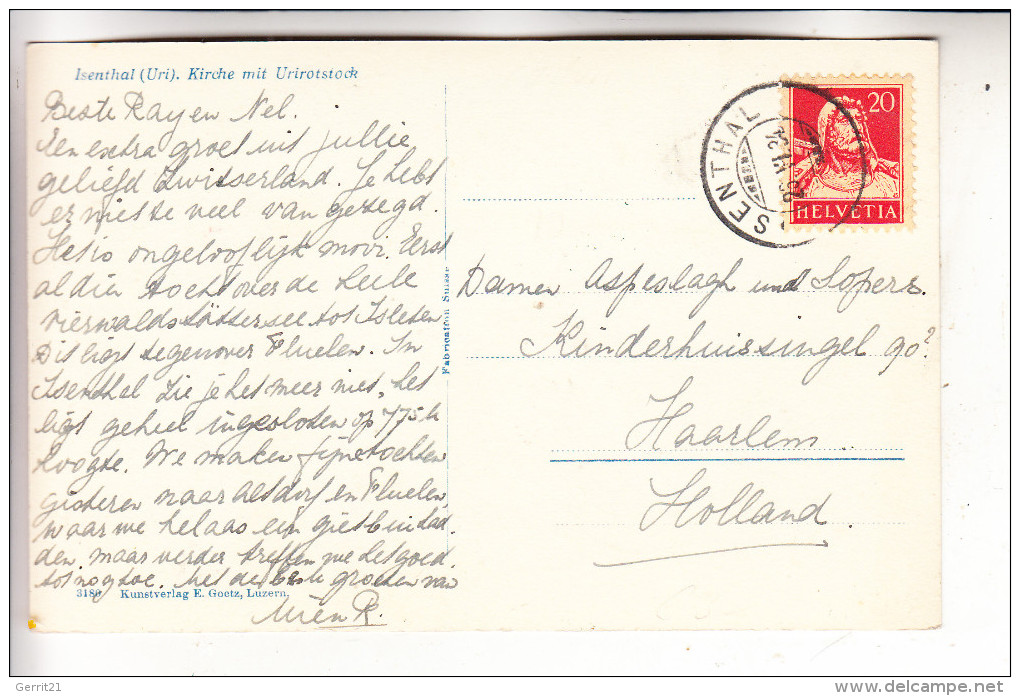 Isenthal (Uri). Kirche mit Urirotstock
Beste Ray en Nel.
Een extra groet uit jullie
geliefd Zwitserland. Je hebt
er niets te veel van gezegd.
Het is ongelooflijk mooi. Eerst
al die tocht over de heele
Vierwaldstättersee tot Isleten
Dit ligt tegenover Fluelen. In
Isenthal zie je het meer niet, het
ligt geheel ingesloten op 775 M
hoogte. We maken fijne tochten
gisteren naar Altdorf en Fluelen,
waar we helaas een gietbui had
den, maar verder treffen we het goed
tot nog toe. Met de beste groeten van
Mien R.
3180 Kunstverlag E. Goetz, Luzern.
Fabrication Suisse
ISENTHAL
20
HELVETIA
Damen Aspeslagh und Lopers.
Kinderhuissingel 90?
Haarlem
Holland.
Gerrit21